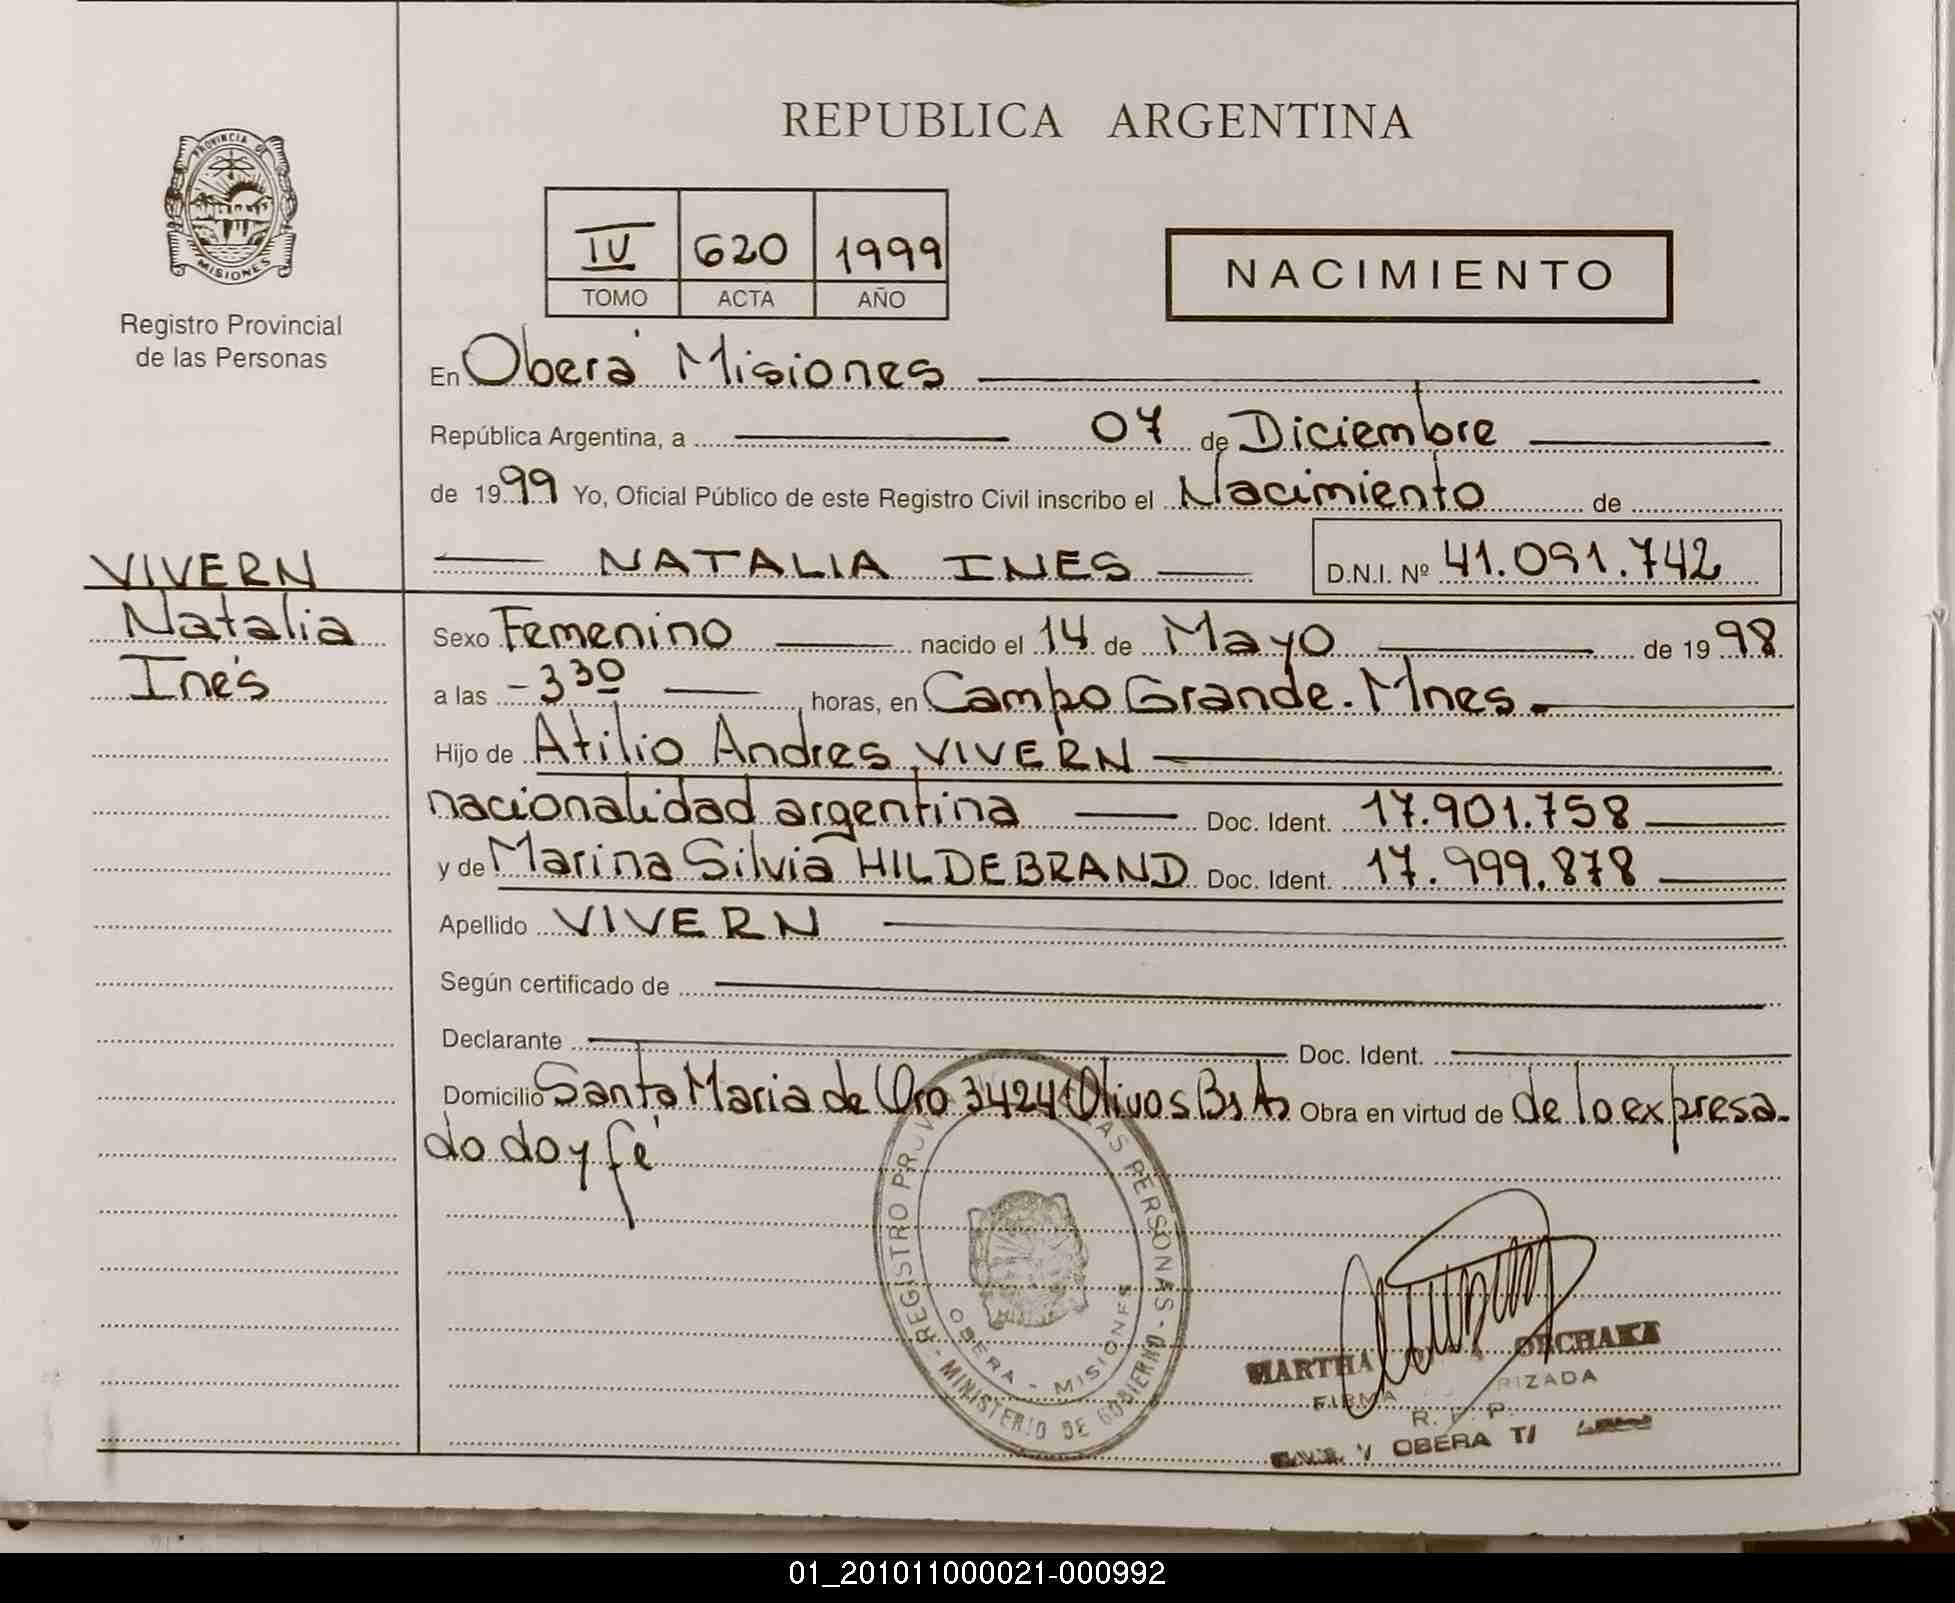 PROVINCIA DE
MISIONES
Registro Provincial
de las Personas
VIVERN
Natalia
Inés
REPUBLICA ARGENTINA
IV 620 1999
TOMO ACTA AÑO
NACIMIENTO
En Oberá Misiones
República Argentina, a 07 de Diciembre
de 1999 Yo, Oficial Público de este Registro Civil inscribo el Nacimiento de
NATALIA INES D.N.I. Nº 41.091.742
Sexo Femenino nacido el 14 de Mayo de 1998
a las -3 30 horas, en Campo Grande. Mnes.
Hijo de Atilio Andres VIVERN
nacionalidad argentina Doc. Ident. 17.901.758
y de Marina Silvia HILDEBRAND Doc. Ident. 17.999.878
Apellido VIVERN
Según certificado de
Declarante Doc. Ident.
Domicilio Santa Maria de Oro 3424 Olivos Bs As Obra en virtud de de lo expresa-
do doy fé
REGISTRO PROV LAS PERSONAS -
OBERA - MISIONES
- MINISTERIO DE GOBIERNO
MARTHA ORCHAKZ
FIRMA RIZADA
R. P. P.
OBERA
01_201011000021-000992